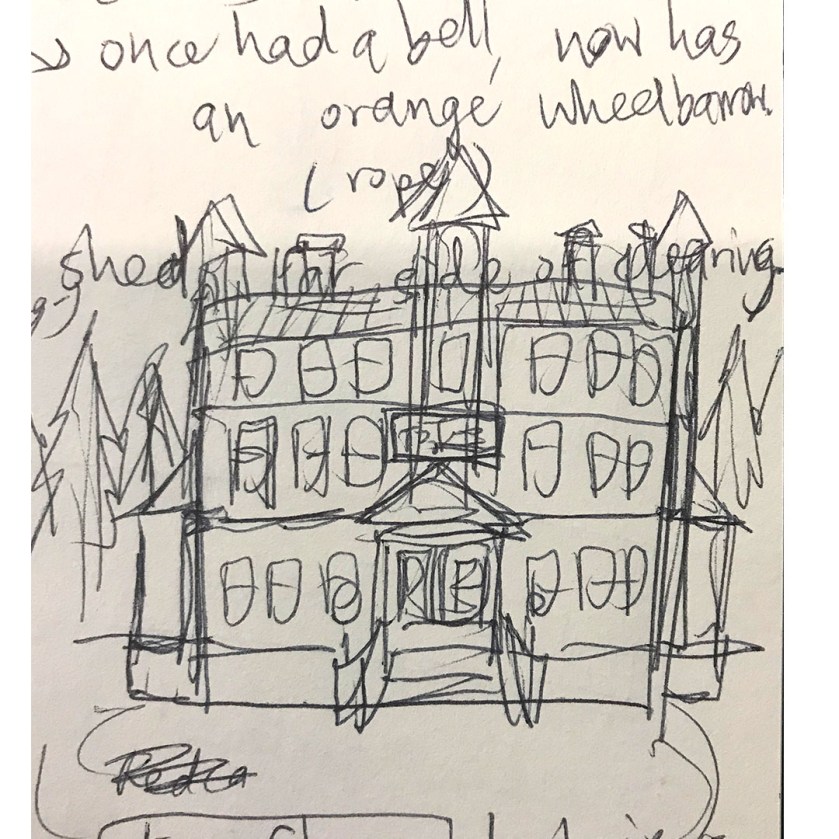 once had a bell, now has
an orange wheelbarrow.
(rope)
shed far side of clearing.